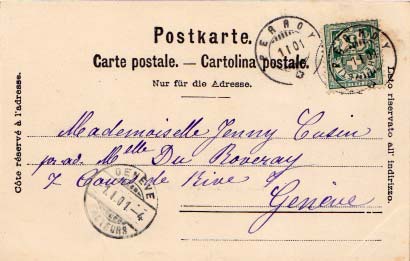 Postkarte.
Carte postale. — Cartolina postale.
Nur für die Adresse.
Côte réservé à l'adresse.
Lato riservato all' indirizzo.
PERROY
1 I 01
PERROY
Mademoiselle Jenny Cusin
par ad. Mlle Du Roveray
7 Cours de Rive
Genève
GENÈVE
1.I.01.-4